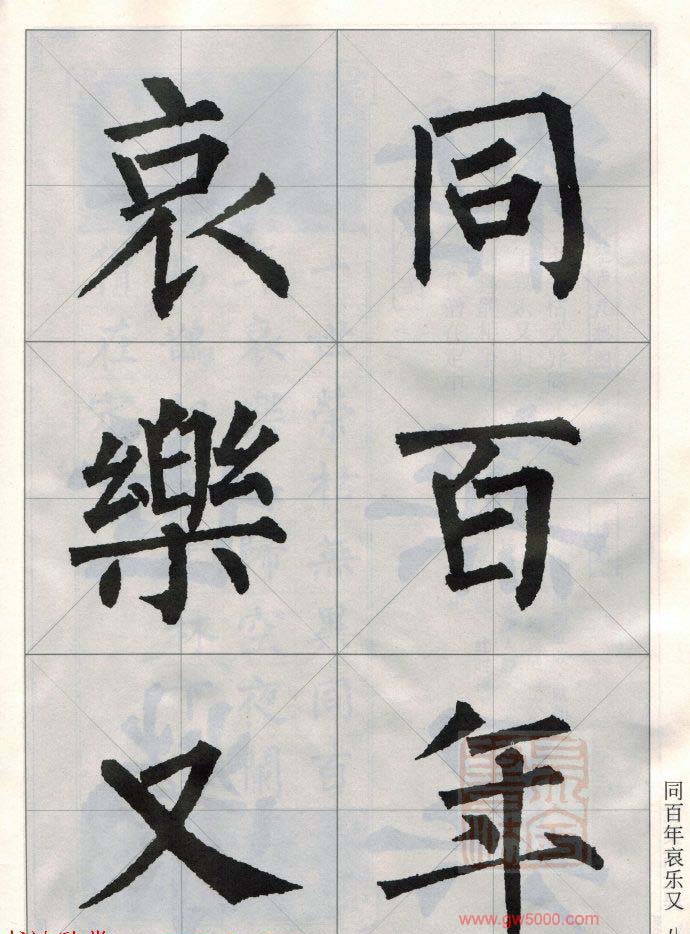 同百年
哀樂又
同百年哀乐又
www.gw5000.com